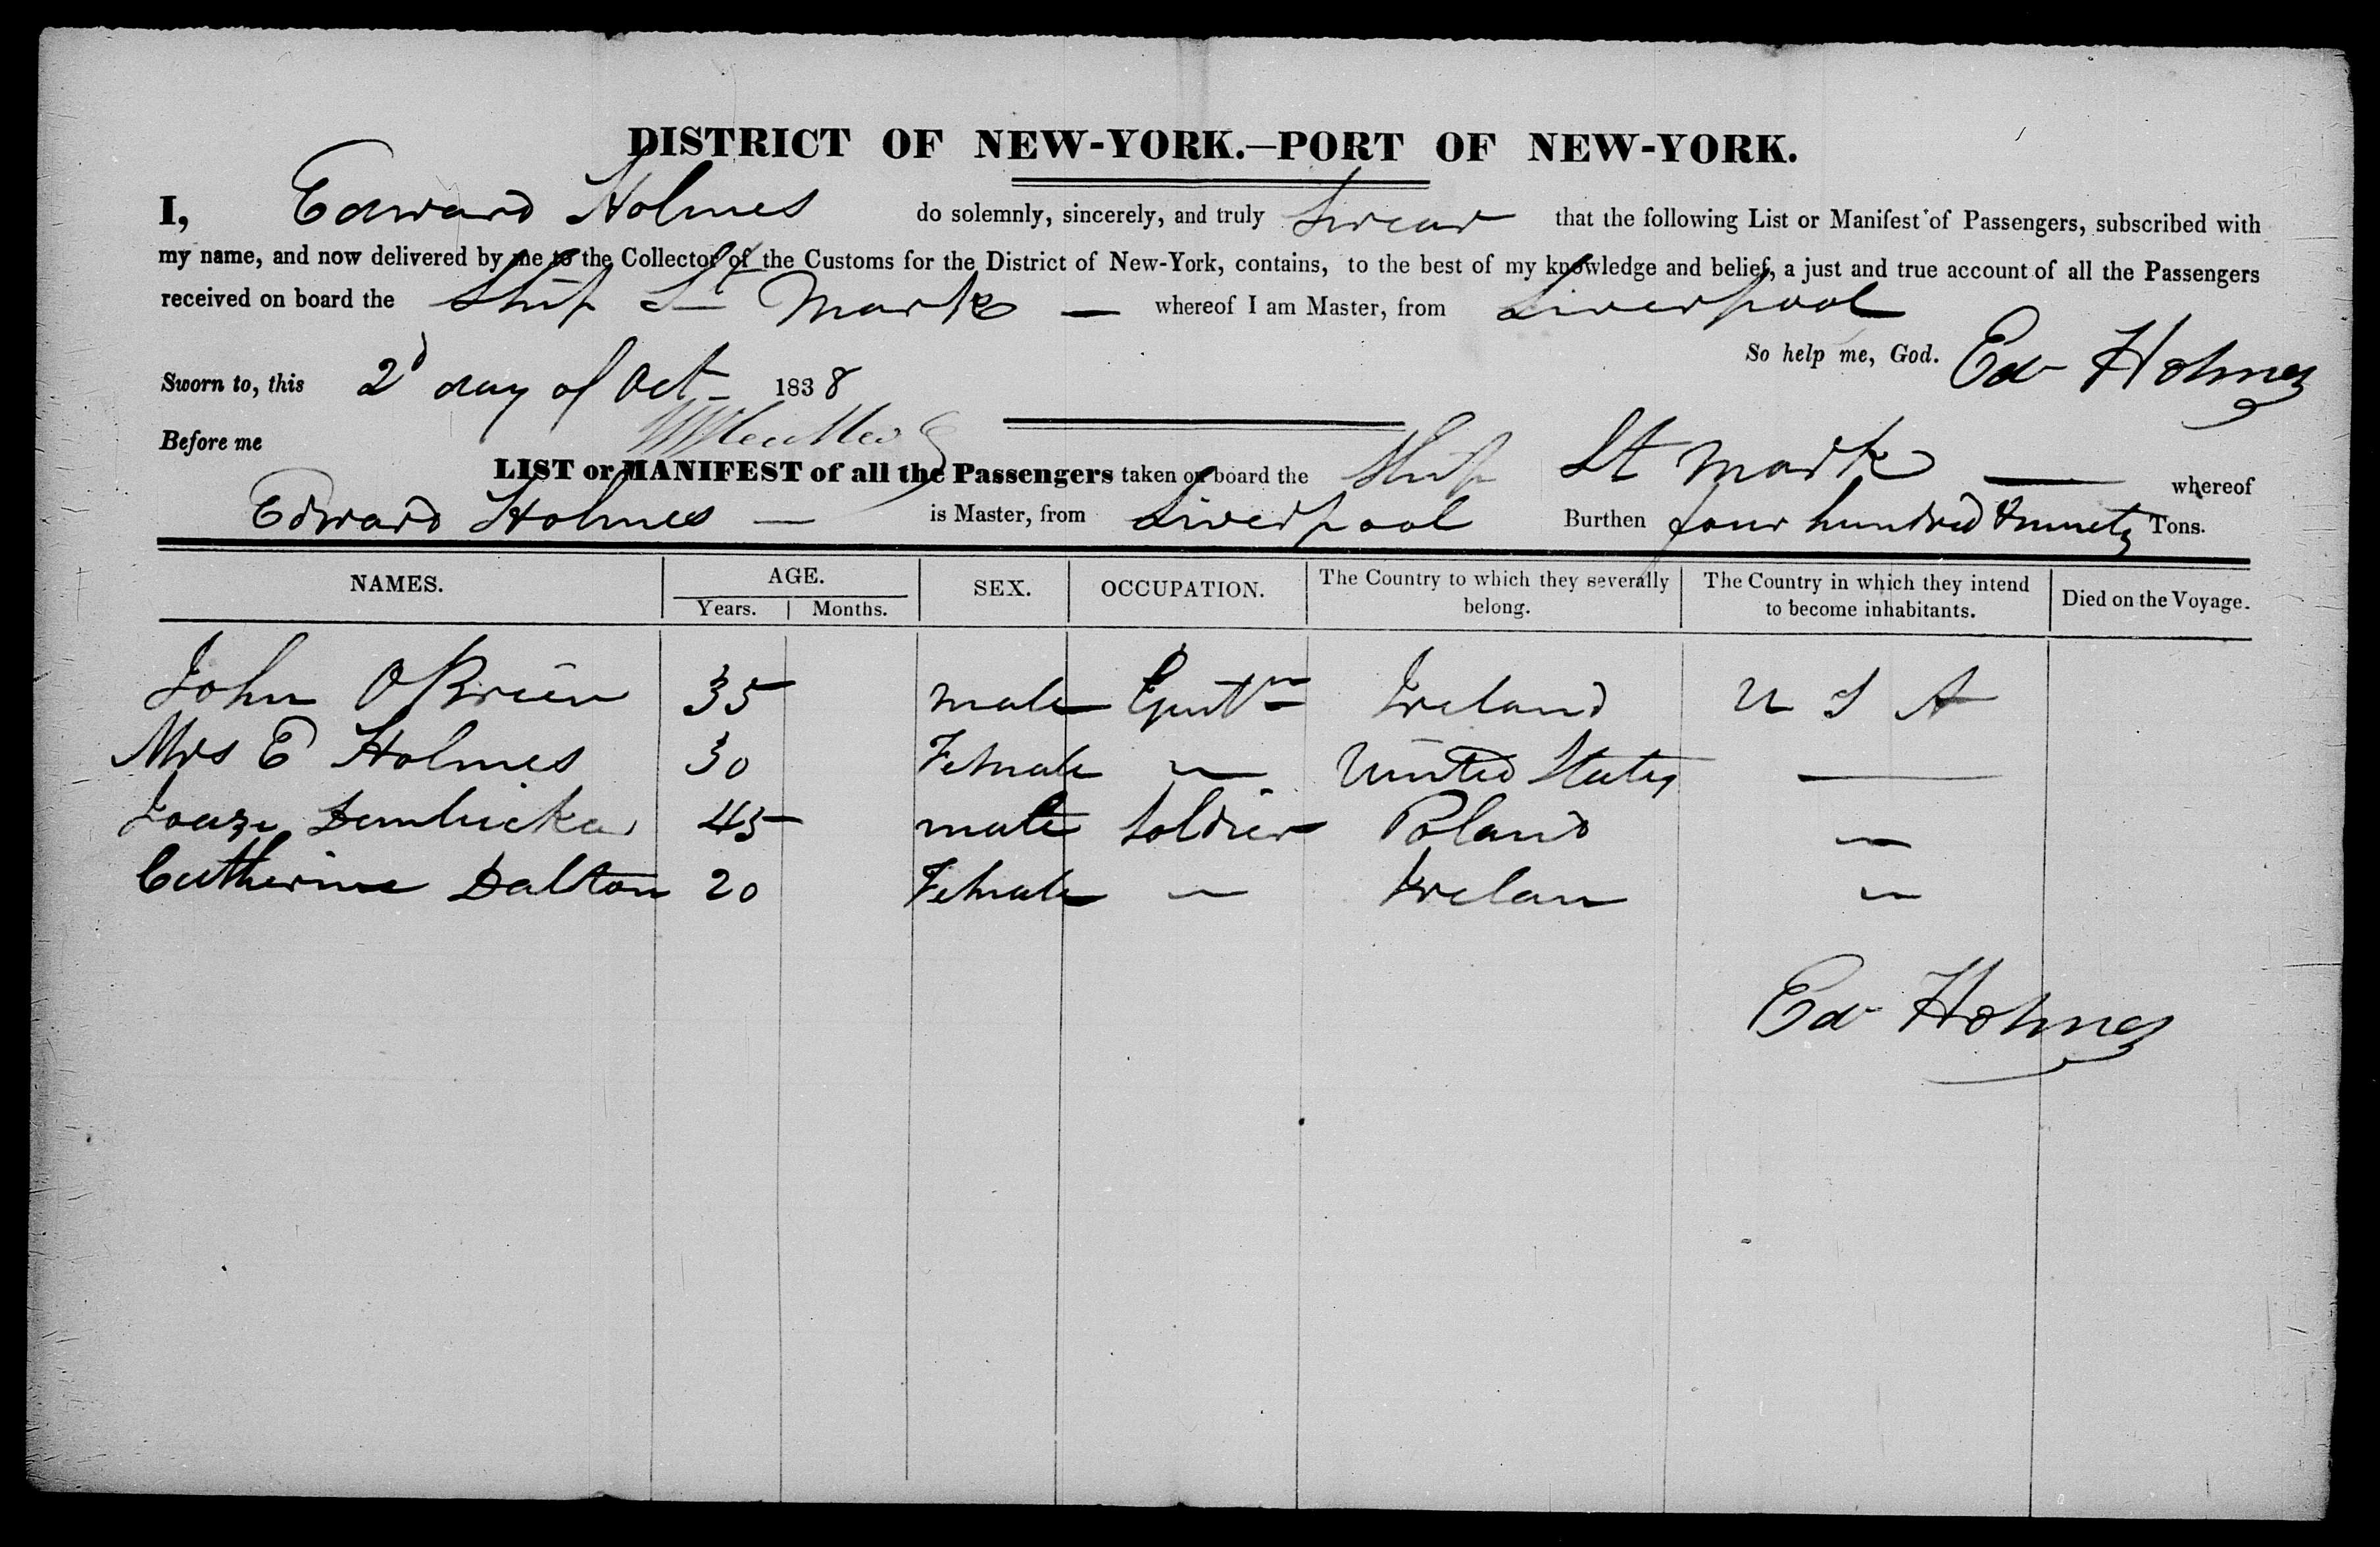 DISTRICT OF NEW-YORK.—PORT OF NEW-YORK.
I, Edward Holmes do solemnly, sincerely, and truly Swear that the following List or Manifest of Passengers, subscribed with
my name, and now delivered by me to the Collector of the Customs for the District of New-York, contains, to the best of my knowledge and belief, a just and true account of all the Passengers
received on board the Ship St Mark — whereof I am Master, from Liverpool
So help me, God. Ed Holmes
Sworn to, this 2d day of Oct 1838
Before me
LIST or MANIFEST of all the Passengers taken on board the Ship St Mark — whereof
Edward Holmes — is Master, from Liverpool Burthen four hundred & ninety Tons.
NAMES. AGE. SEX. OCCUPATION. The Country to which they severally belong. The Country in which they intend to become inhabitants. Died on the Voyage.
Years. Months.
John OBrien 35 male Gentn Ireland U S A
Mrs E Holmes 30 Female — United States —
45 male Soldier Poland —
Catherine Dalton 20 Female — Irelan —
Ed Holmes